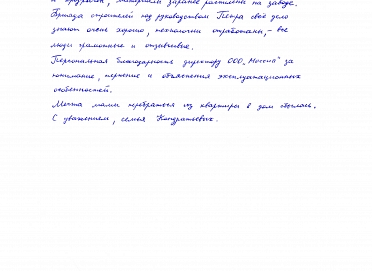 и продумал, материалы заранее распилены на заводе.
Бригада строителей под руководством Петра своё дело
знают очень хорошо, технологии отработаны, - все
люди грамотные и отзывчивые.
Персональная благодарность директору ООО за
понимание, терпение и объяснения эксплуатационных
особенностей.
Мечта мамы перебраться из квартиры в дом сбылась.
С уважением, семья Кондратьевых.